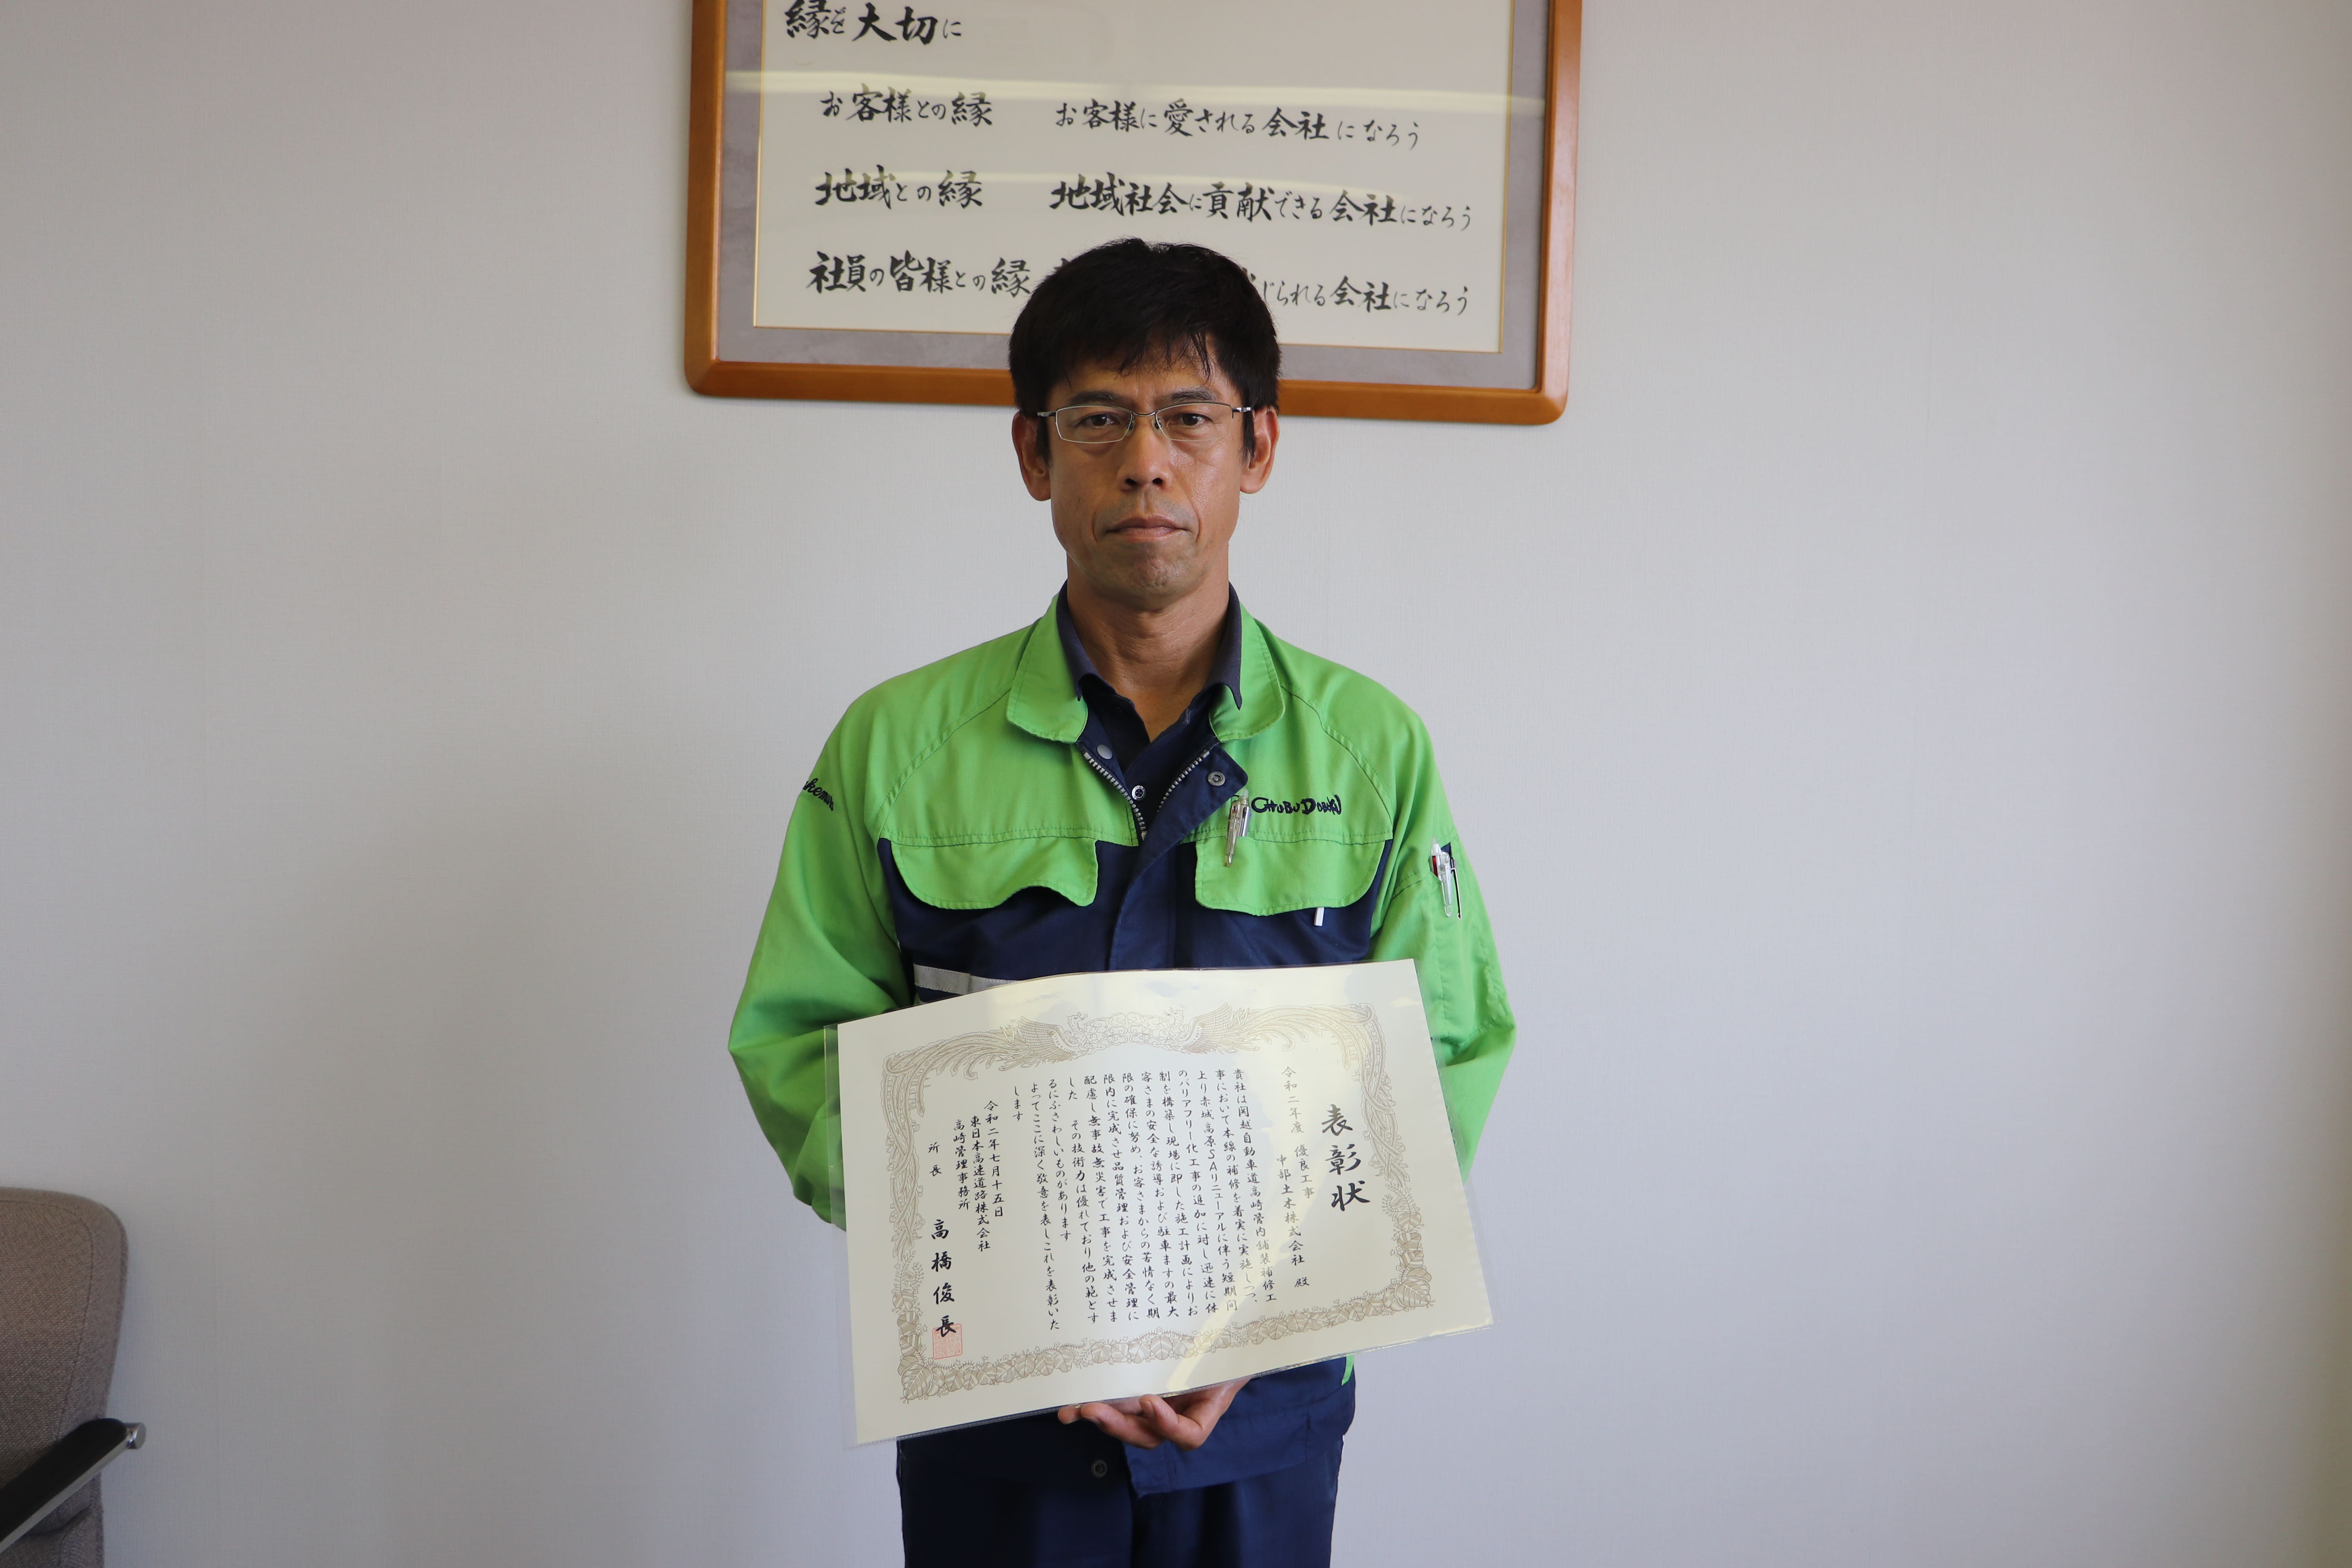 縁を大切に
お客様との縁 お客様に愛される会社になろう
地域との縁 地域社会に貢献できる会社になろう
社員の皆様との縁
じられる会社になろう
CHUBU DOBOKU
表彰状
令和二年度 優良工事
中部土木株式会社 殿
貴社は関越自動車道高崎管内舗装補修工
事において本線の補修を着実に実施しつつ、
上り赤城高原SAリニューアルに伴う短期間
のバリアフリー化工事の追加に対し迅速に体
制を構築し現場に即した施工計画によりお
客さまの安全な誘導および駐車ますの最大
限の確保に努め、お客さまからの苦情なく期
限内に完成させ品質管理および安全管理に
配慮し無事故無災害で工事を完成させま
した その技術力は優れており他の範とす
るにふさわしいものがあります
よってここに深く敬意を表しこれを表彰いた
します
令和二年七月十五日
東日本高速道路株式会社
高崎管理事務所
所長 高橋俊長